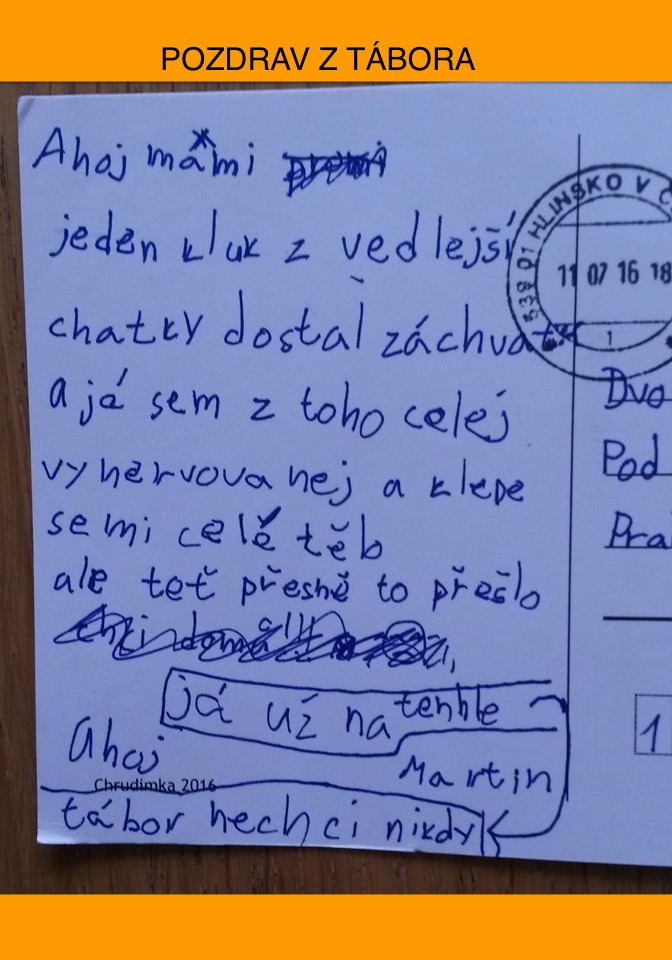 POZDRAV Z TÁBORA
Ahoj mámi
jeden kluk z vedlejší
chatky dostal záchvat
a já sem z toho celej
vynervovanej a klepe
se mi celé těb
ale teť přesně to přešlo
já už na tenhle
Ahoj
Martin
Chrudimka 2016
tábor nechci nikdy
539 01 HLINSKO V
11 07 16 18
1
Dvo
Pod
Pra
1